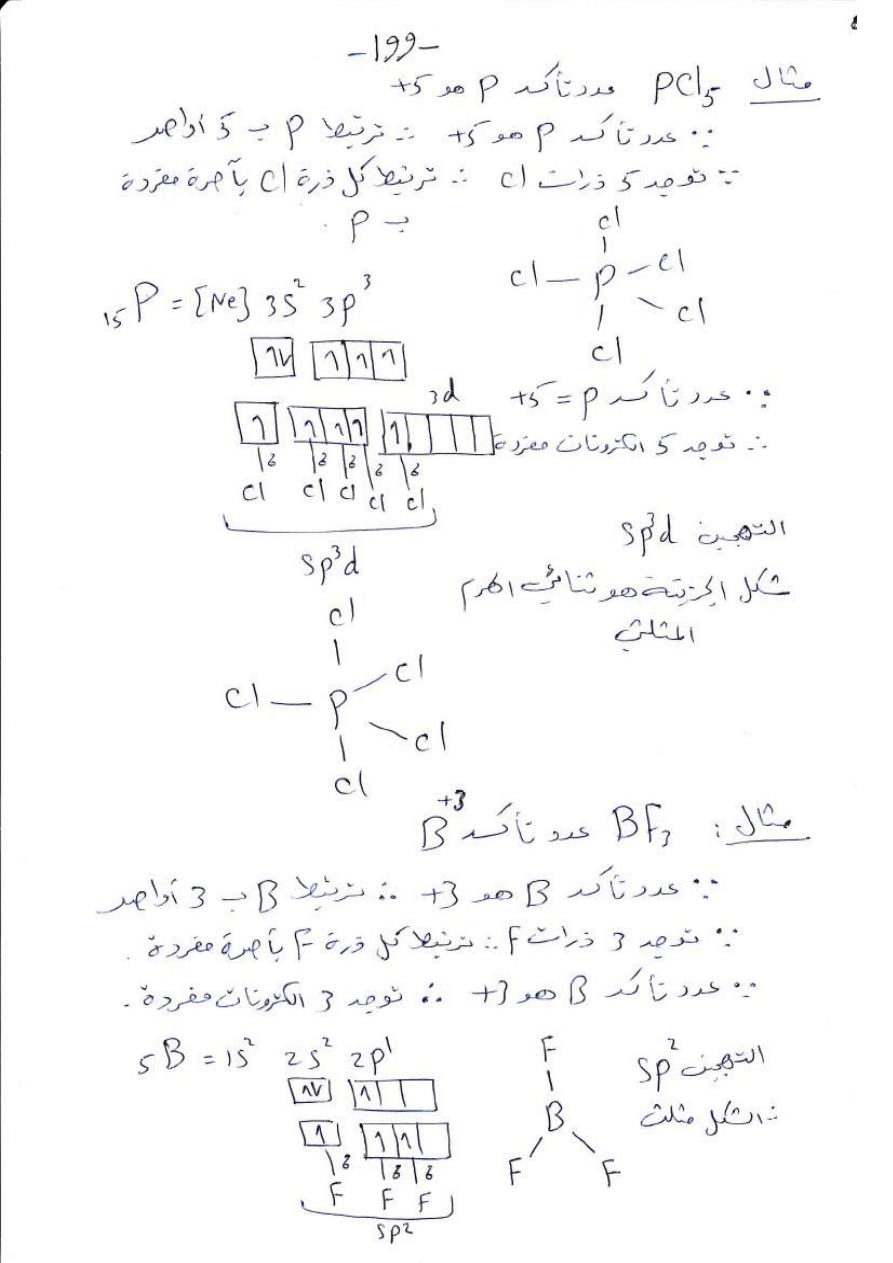 -199-
مثال PCl5 عدد تأكسد P هو +5
∵ عدد تأكسد P هو +5 ∴ ترتبط P بـ 5 أواصر
∵ توجد 5 ذرات Cl ∴ ترتبط كل ذرة Cl بآصرة مفردة
بـ P.
Cl
Cl — P — Cl
Cl
Cl
15P = [Ne] 3S² 3p³
↿⇂ 1 1 1
3d
∵ عدد تأكسد P = +5
1 1 1 1 1
∴ توجد 5 الكترونات مفردة
6 6 6 6 6
Cl Cl Cl Cl Cl
Sp³d
التهجين Sp³d
شكل الجزيئة هو ثنائي الهرم
المثلثي
Cl
Cl — P — Cl
Cl
Cl
مثال: BF3 عدد تأكسد B⁺³
∵ عدد تأكسد B هو +3 ∴ ترتبط B بـ 3 أواصر
∵ توجد 3 ذرات F ∴ ترتبط كل ذرة F بآصرة مفردة.
∵ عدد تأكسد B هو +3 ∴ توجد 3 الكترونات مفردة.
5B = 1S² 2S² 2p¹
↿⇂ 1
1 1 1
6 6 6
F F F
Sp²
F
B
F F
التهجين Sp²
∴ الشكل مثلث